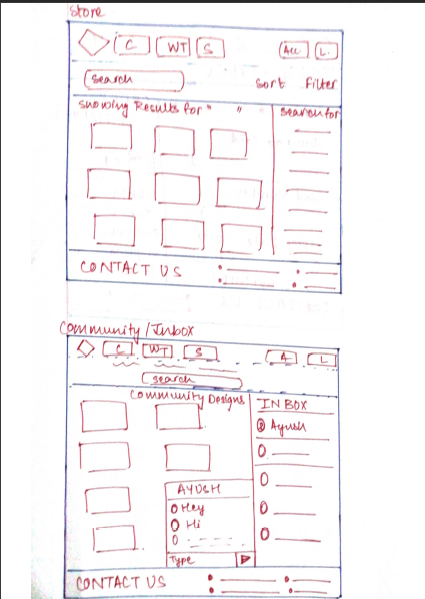 Store
C WT S Acc L.
Search
Sort Filter
Showing Results for " " Search for
CONTACT US
Community/Inbox
C WT S A L
Search
Community Designs INBOX
Ayush
AYUSH
Hey
Hi
Type
CONTACT US